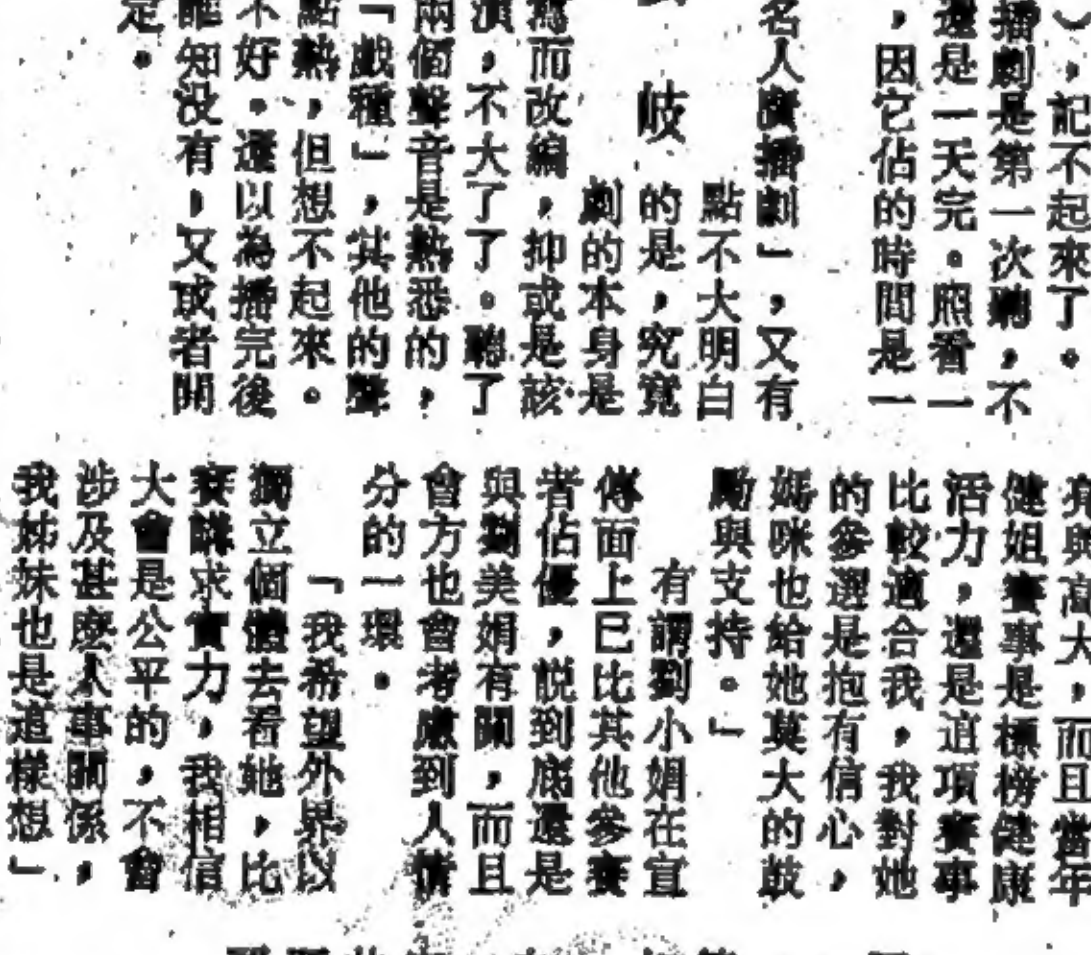 ），記不起來了。
播劇是第一次聽，不
還是一天完。照看一
，因它佔的時間是一
名人廣播劇」，又有
點不大明白
的是，究竟
劇的本身是
寫而改編，抑或是該
演，不大了了。聽了
兩個聲音是熟悉的，
「戲種」，其他的聲
點熱，但想不起來。
不好。還以為播完後
誰知没有，又或者開
定。
歧
高大，而且當年
健姐賽事是標榜健康
活力，還是這項賽事
比較適合我，我對她
的參選是抱有信心，
媽咪也給她莫大的鼓
勵與支持。」
有謂劉小娟在宣
傳面上已比其他參賽
者佔優，説到底還是
與劉美娟有關，而且
會方也會考慮到人情
分的一環。
「我希望外界以
獨立個體去看她，比
賽講求實力，我相信
大會是公平的，不會
涉及甚麼人事關係，
我姊妹也是這樣想」